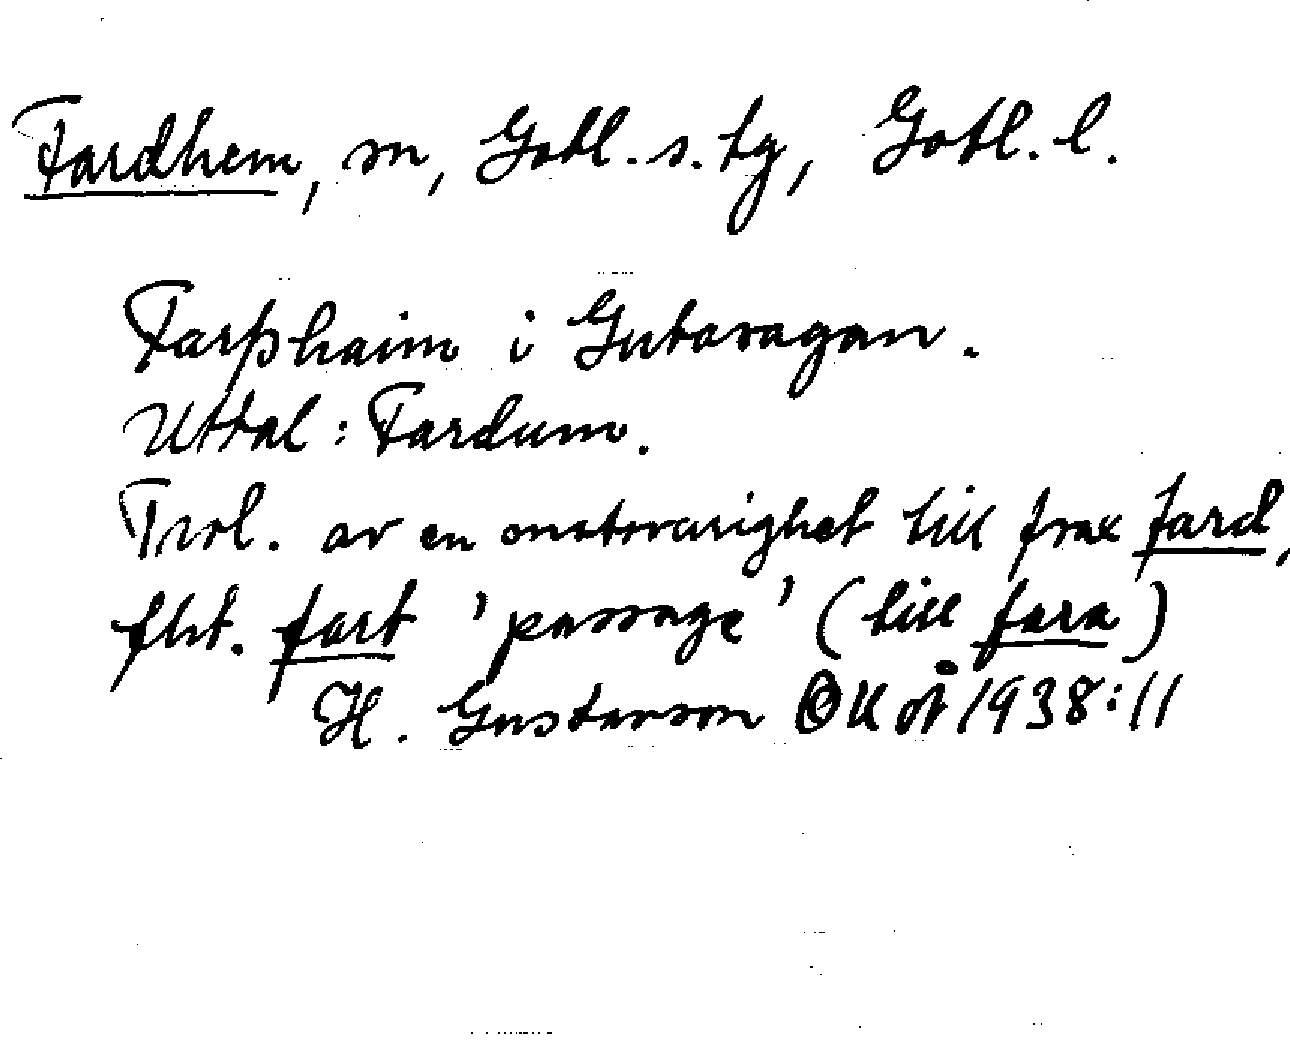 Fardhem, sn, Gotl. s. tg, Gotl. l.
Farþhaim i Gutasagan.
Uttal: Fardum.
Trol. av en motsvarighet till frax fard,
fht. fart 'passage' (till fara)
H. Gustavson OUÅ 1938:11